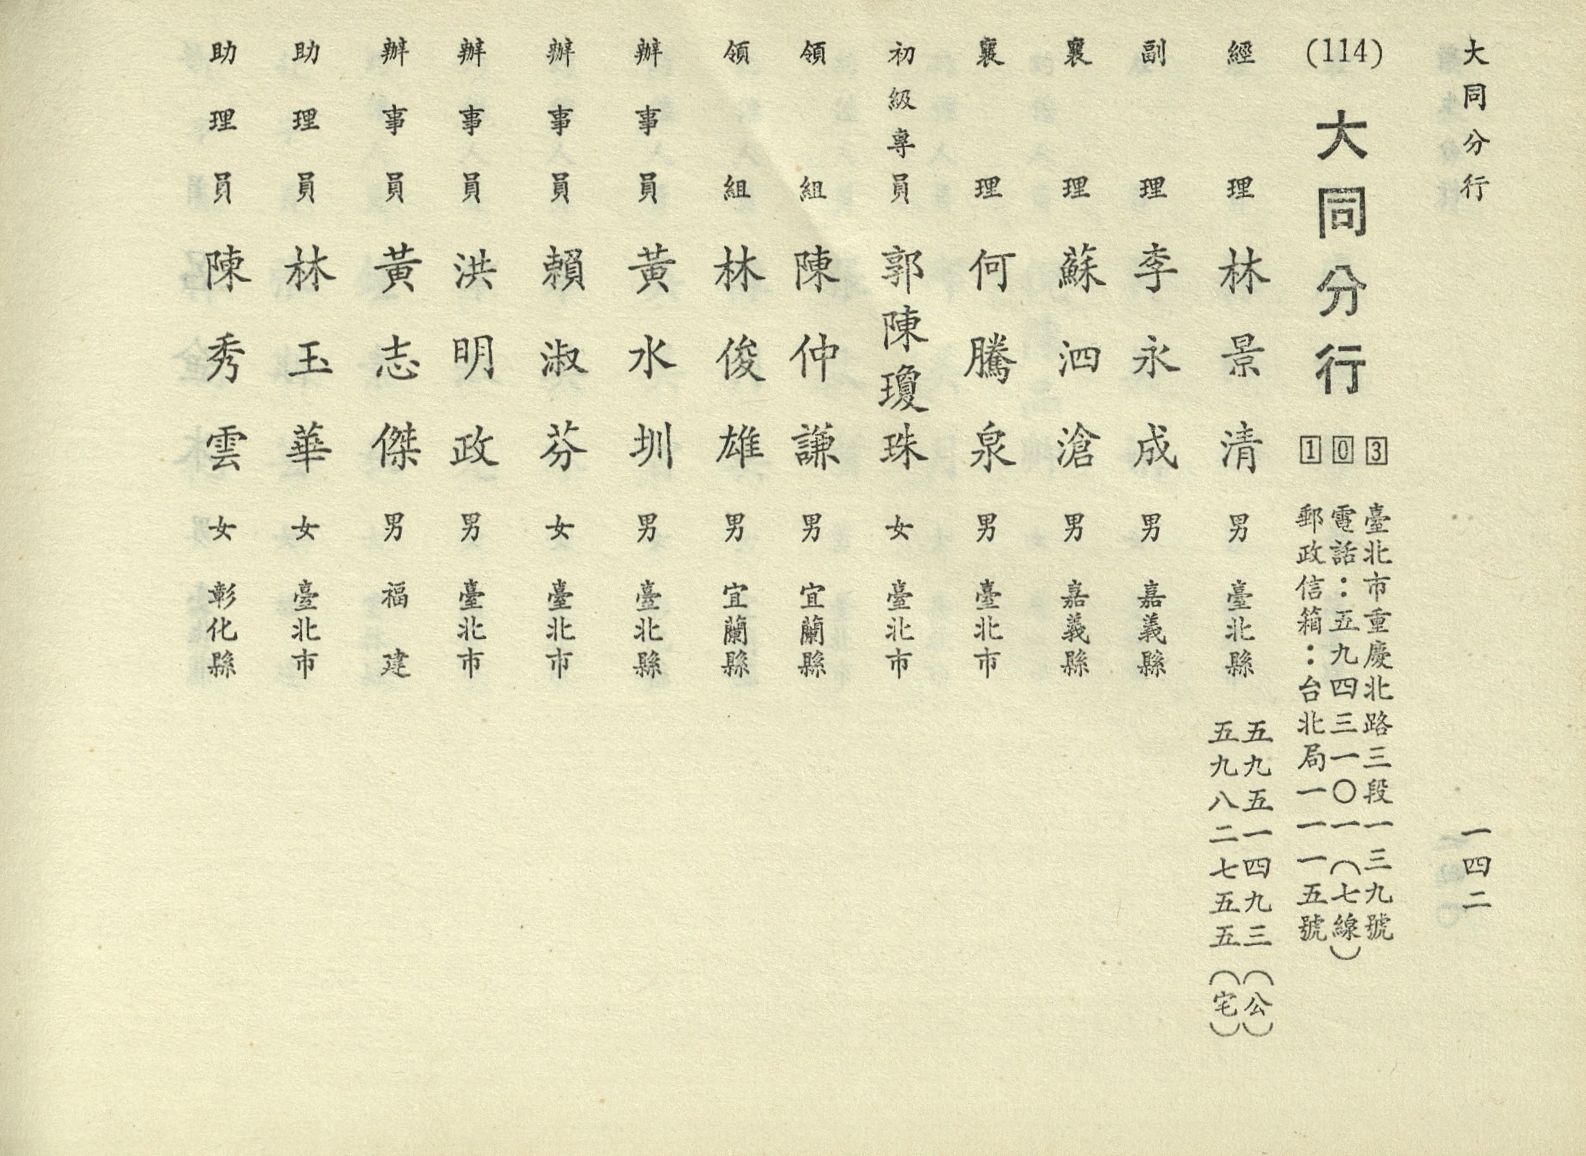 大同分行
一四二
(114)
大同分行
103
臺北市重慶北路三段一三九號
電話：五九四三一〇一（七線）
郵政信箱：台北局一一一五號
經理 林景清 男 臺北縣
五九五一四九三（公）
五九八二七五五（宅）
副理 李永成 男 嘉義縣
襄理 蘇泗滄 男 嘉義縣
襄理 何騰泉 男 臺北市
初級專員 郭陳瓊珠 女 臺北市
領組 陳仲謙 男 宜蘭縣
領組 林俊雄 男 宜蘭縣
辦事員 黃水圳 男 臺北縣
辦事員 賴淑芬 女 臺北市
辦事員 洪明政 男 臺北市
辦事員 黃志傑 男 福建
助理員 林玉華 女 臺北市
助理員 陳秀雲 女 彰化縣